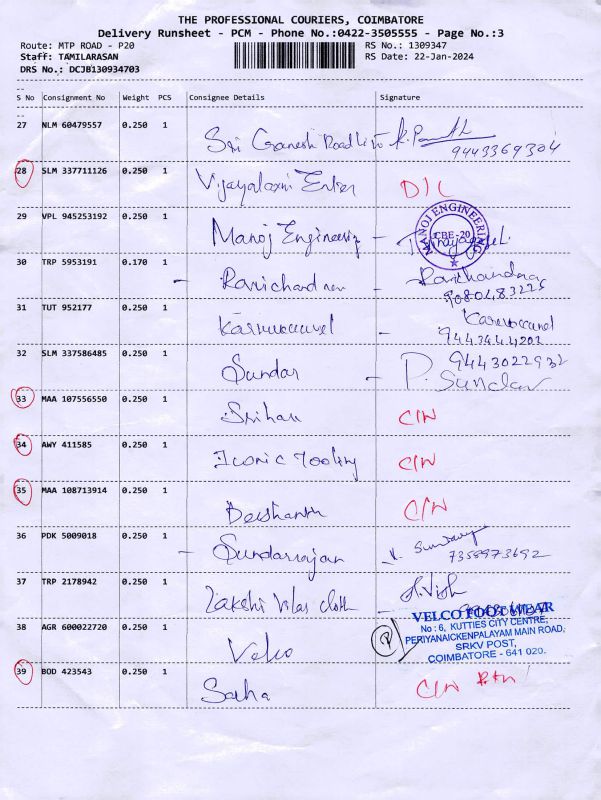 THE PROFESSIONAL COURIERS, COIMBATORE
Delivery Runsheet - PCM - Phone No.:0422-3505555 - Page No.:3
Route: MTP ROAD - P20 RS No.: 1309347
Staff: TAMILARASAN RS Date: 22-Jan-2024
DRS No.: DCJB130934703
S No Consignment No Weight PCS Consignee Details Signature
27 NLM 60479557 0.250 1 Sri Ganesh Road
9443369304
28 SLM 337711126 0.250 1 Vijayalaxmi D/L
29 VPL 945253192 0.250 1 Manoj Engineering -
MANOJ ENGINEERING
CBE-20
30 TRP 5953191 0.170 1 - Ravichandran -
9080483225
31 TUT 952177 0.250 1
9443444202
32 SLM 337586485 0.250 1 Sundar - 9443022932
P. Sundar
33 MAA 107556550 0.250 1 Srihari C/W
34 AWY 411585 0.250 1 Iconic Tooling C/W
35 MAA 108713914 0.250 1 C/W
36 PDK 5009018 0.250 1 - Sundarrajan
7358973692
37 TRP 2178942 0.250 1 Lakshi Vilas Cloth
38 AGR 600022720 0.250 1 Velco
VELCO FOOT WEAR
No : 6, KUTTIES CITY CENTRE,
PERIYANAICKENPALAYAM MAIN ROAD,
SRKV POST,
COIMBATORE - 641 020.
39 BOD 423543 0.250 1 C/W